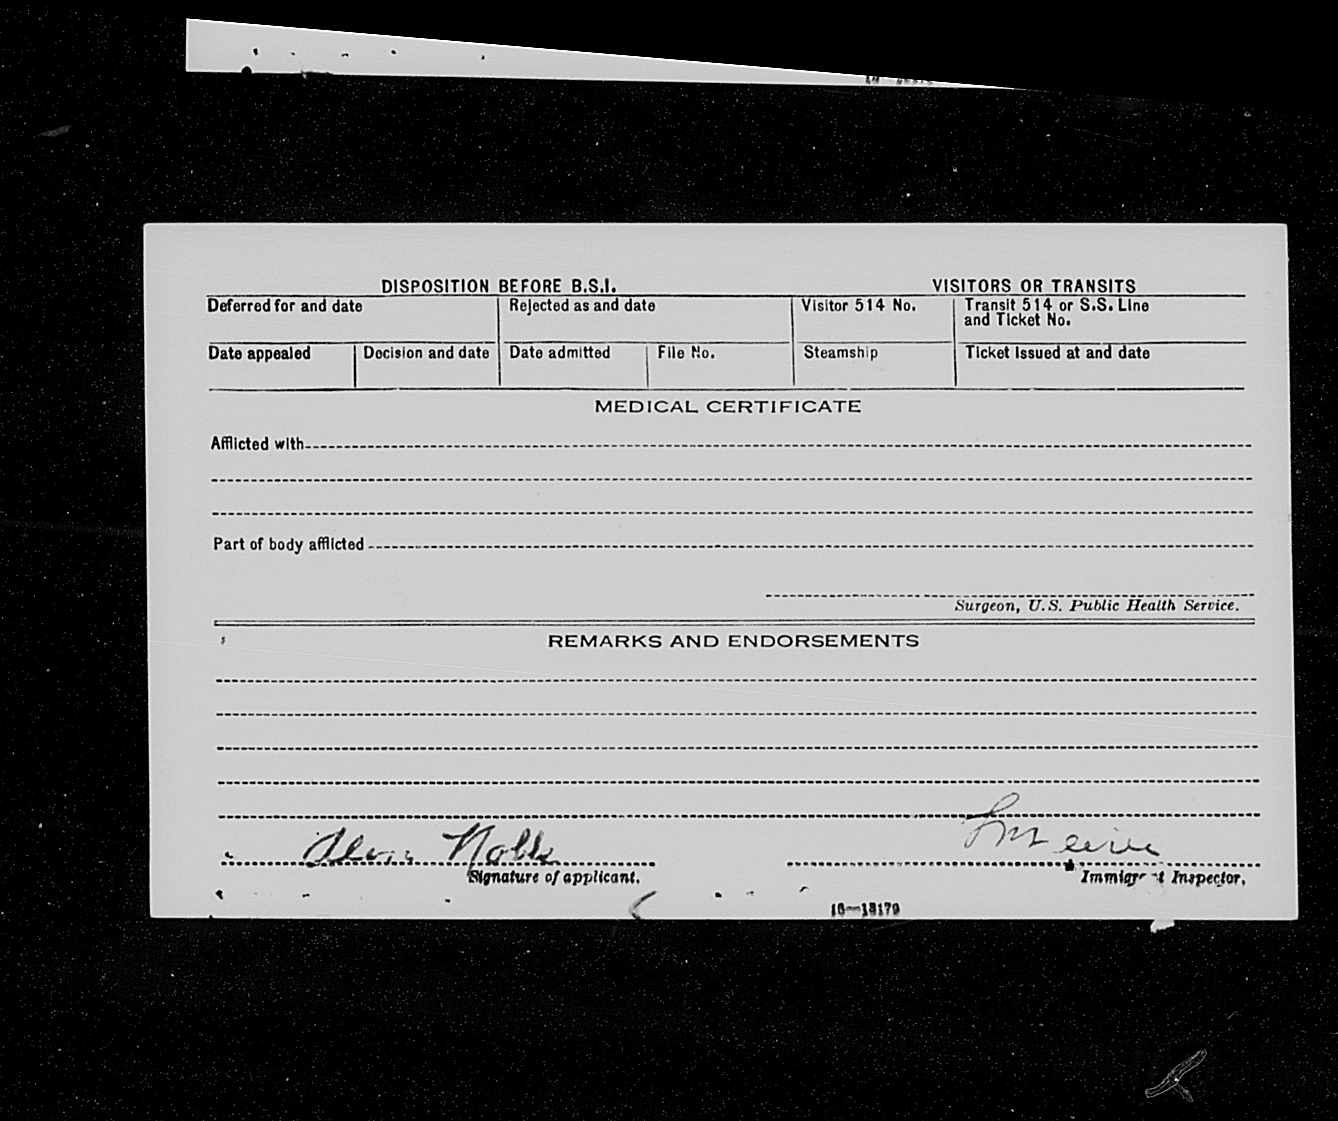 DISPOSITION BEFORE B.S.I.
VISITORS OR TRANSITS
Deferred for and date
Rejected as and date
Visitor 514 No.
Transit 514 or S.S. Line
and Ticket No.
Date appealed
Decision and date
Date admitted
File No.
Steamship
Ticket issued at and date
MEDICAL CERTIFICATE
Afflicted with
Part of body afflicted
Surgeon, U.S. Public Health Service.
REMARKS AND ENDORSEMENTS
Signature of applicant.
Immigrant Inspector.
16—13179